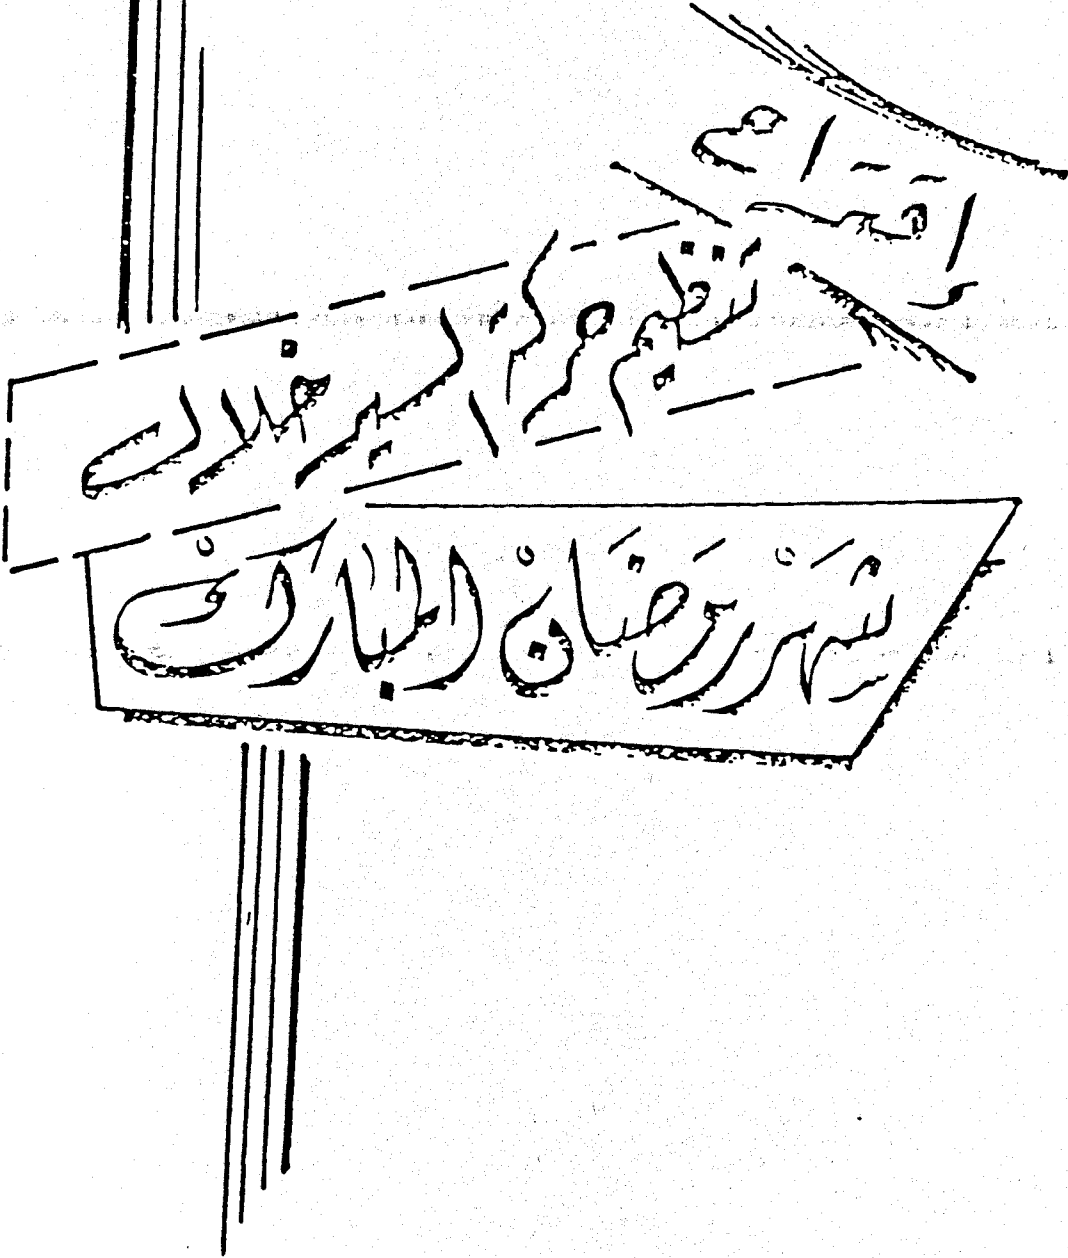 تنظيم حركة السير خلال
شَهْرُ رَمَضَانْ المبَارَكْ